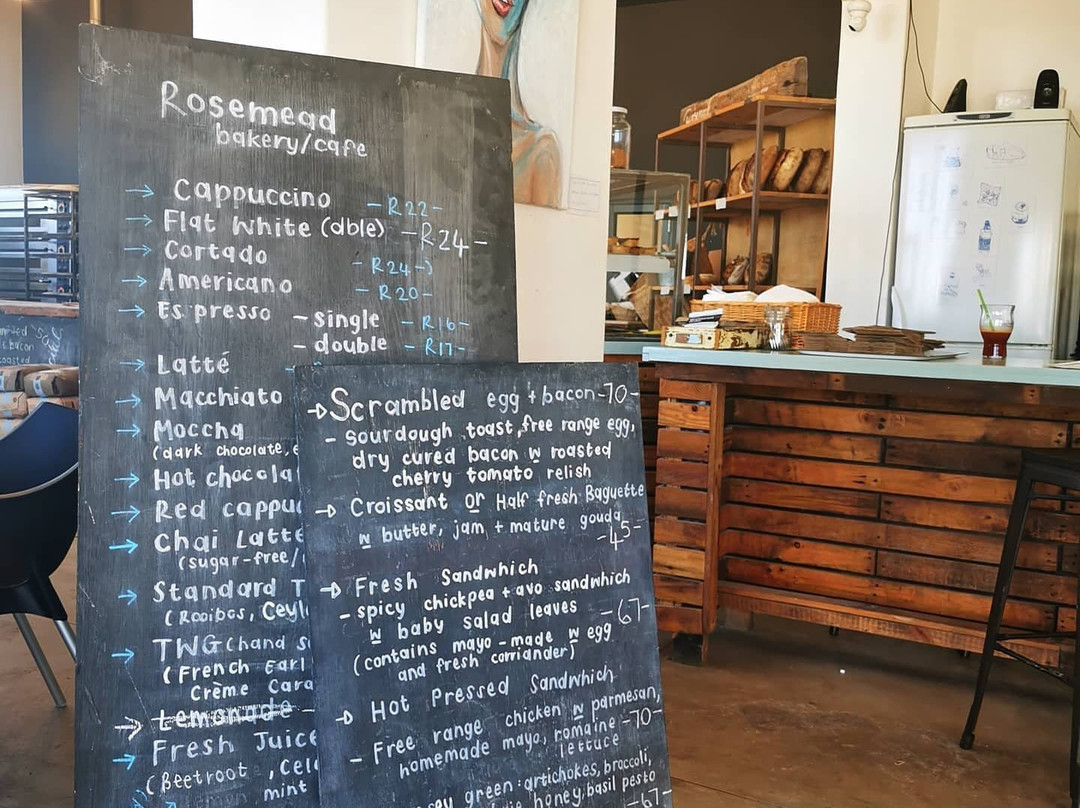 Rosemead
bakery/cafe
→ Cappuccino -R22-
→ Flat White (dble) -R24-
→ Cortado -R24-
→ Americano -R20-
→ Espresso -single -R16-
-double -R17-
→ Latté
→ Macchiato
→ Moccha
(dark chocolate,
→ Hot chocola
→ Red cappu
→ Chai Latte
(sugar-free/
→ Standard T
(Rooibos, Ceyl
→ TWG
(French Earl
Crème Cara
→ Lemonade -
→ Fresh Juice
(Beetroot, Cel
mint
→ Scrambled egg + bacon -70-
- sourdough toast, free range egg,
dry cured bacon w roasted
cherry tomato relish
→ Croissant or Half fresh Baguette
w butter, jam + mature gouda
-45-
→ Fresh Sandwhich
- spicy chickpea + avo sandwhich
w baby salad leaves -67-
(contains mayo-made w egg
and fresh corriander)
→ Hot Pressed Sandwhich
- Free range chicken w parmesan,
homemade mayo, romaine -70-
lettuce
green: artichokes, broccoli,
honey, basil pesto
-67-